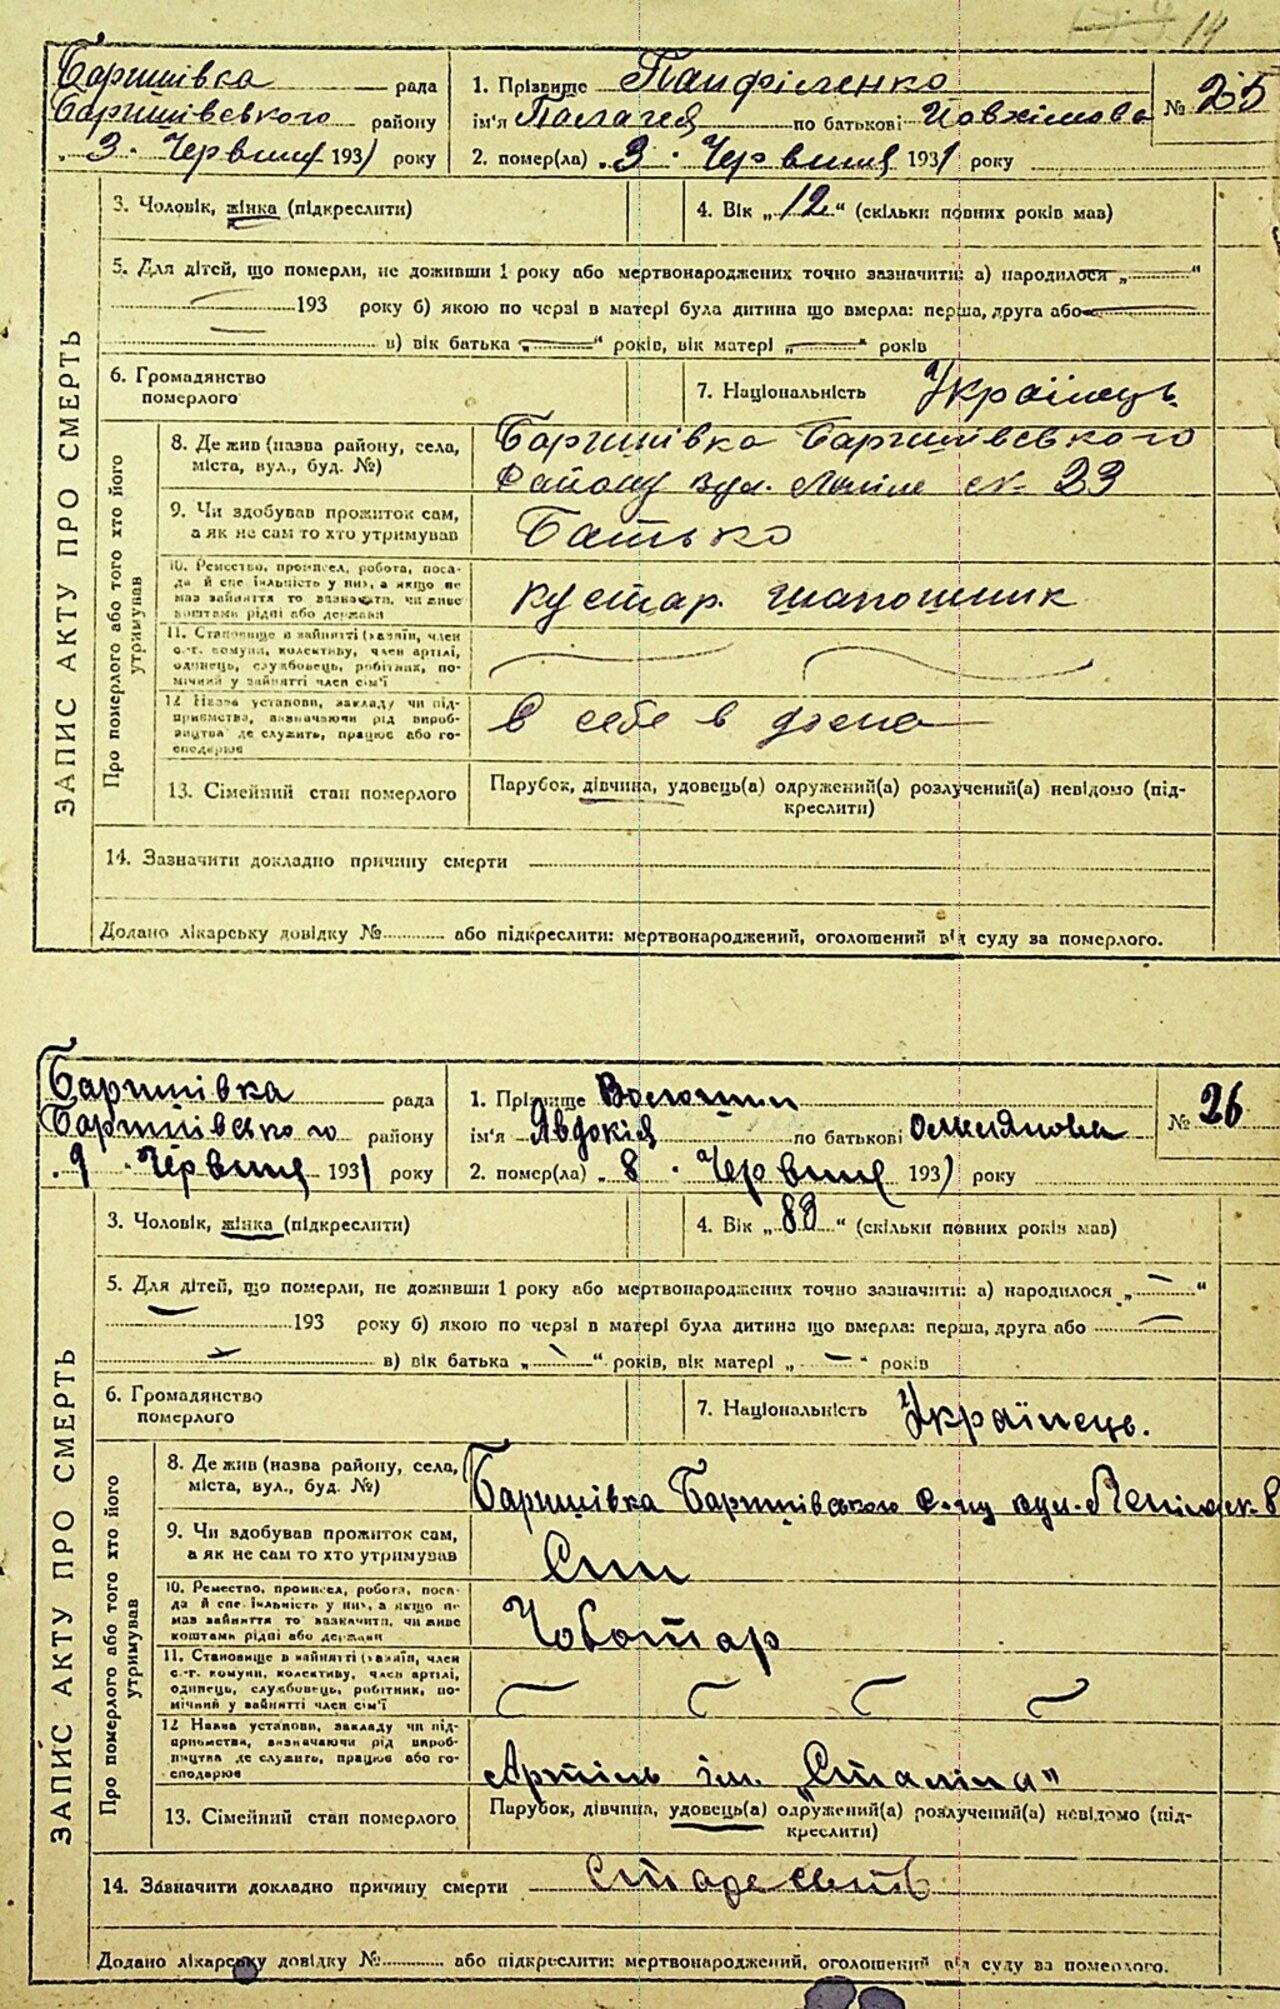 14
Баришівка рада
Баришівського району
„3“ Червня 1931 року
1. Прізвище Панфіленко
ім'я Палагея по батькові Йовхімова
2. помер(ла) „3“ Червня 1931 року
№ 25
ЗАПИС АКТУ ПРО СМЕРТЬ
3. Чоловік, жінка (підкреслити)
4. Вік „12“ (скільки повних років мав)
5. Для дітей, що померли, не доживши 1 року або мертвонароджених точно зазначити: а) народилося „ “
193 року б) якою по черзі в матері була дитина що вмерла: перша, друга або
в) вік батька „ “ років, вік матері „ “ років
6. Громадянство
померлого
7. Національність Українець
Про померлого або того хто його
утримував
8. Де жив (назва району, села,
міста, вул., буд. №)
Баришівка Баришівського
Району вул. Леніна № 23
9. Чи здобував прожиток сам,
а як не сам то хто утримував
Батько
10. Ремество, промисел, робота, поса-
да й спеціяльність у них, а якщо не
мав зайняття то зазначити, чи живе
коштами рідні або держави
кустар. шапошник
11. Становище в зайнятті (хазяїн, член
с.-г. комуни, колективу, член артілі,
одинець, службовець, робітник, по-
мічний у зайнятті член сім'ї
12 Назва установи, закладу чи під-
приємства, визначаючи рід вироб-
ництва де служить, працює або го-
сподарює
в себе в дома
13. Сімейний стан померлого
Парубок, дівчина, удовець(а) одружений(а) розлучений(а) невідомо (під-
креслити)
14. Зазначити докладно причину смерти
Додано лікарську довідку № або підкреслити: мертвонароджений, оголошений від суду за померлого.
Баришівка рада
Баришівського району
„9“ Червня 1931 року
1. Прізвище Волошин
ім'я Явдокія по батькові Омелянова
2. помер(ла) „8“ Червня 1931 року
№ 26
ЗАПИС АКТУ ПРО СМЕРТЬ
3. Чоловік, жінка (підкреслити)
4. Вік „83“ (скільки повних років мав)
5. Для дітей, що померли, не доживши 1 року або мертвонароджених точно зазначити: а) народилося „ “
193 року б) якою по черзі в матері була дитина що вмерла: перша, друга або
в) вік батька „ “ років, вік матері „ “ років
6. Громадянство
померлого
7. Національність Українець.
Про померлого або того хто його
утримував
8. Де жив (назва району, села,
міста, вул., буд. №)
Баришівка Баришівського р-ну вул. Леніна № 8
9. Чи здобував прожиток сам,
а як не сам то хто утримував
Син
10. Ремество, промисел, робота, поса-
да й спеціяльність у них, а якщо не
мав зайняття то зазначити, чи живе
коштами рідні або держави
Чоботар
11. Становище в зайнятті (хазяїн, член
с.-г. комуни, колективу, член артілі,
одинець, службовець, робітник, по-
мічний у зайнятті член сім'ї
12 Назва установи, закладу чи під-
приємства, визначаючи рід вироб-
ництва де служить, працює або го-
сподарює
Артіль ім. „Сталіна“
13. Сімейний стан померлого
Парубок, дівчина, удовець(а) одружений(а) розлучений(а) невідомо (під-
креслити)
14. Зазначити докладно причину смерти
Додано лікарську довідку № або підкреслити: мертвонароджений, оголошений від суду за померлого.